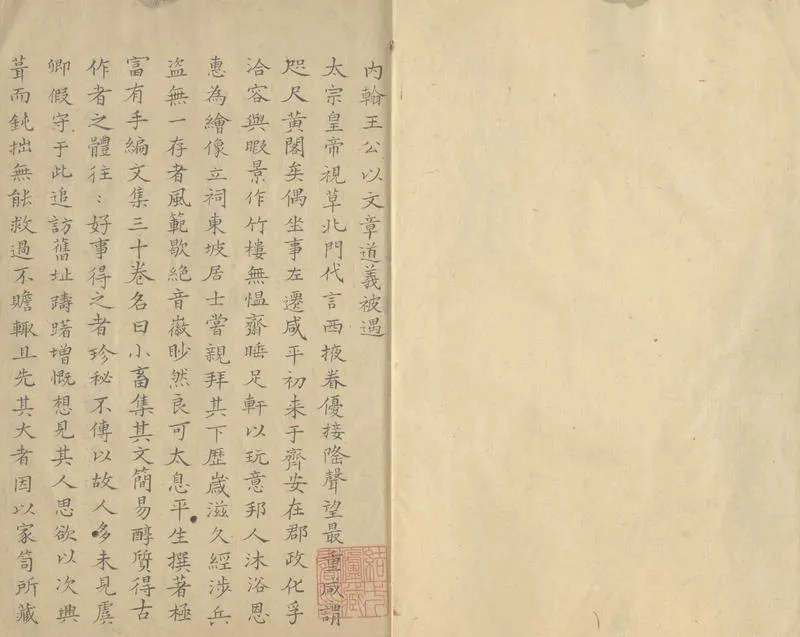 內翰王公以文章道義被遇
太宗皇帝視草北門代言西掖眷優接隆聲望最重咸謂
咫尺黃閣矣偶坐事左遷咸平初来于齊安在郡政化孚
洽容與暇景作竹樓無愠齋睡足軒以玩意邦人沐浴恩
惠為繪像立祠東坡居士嘗親拜其下歷歲滋久經涉兵
盗無一存者風範歇絶音徽眇然良可太息平生撰著極
富有手編文集三十卷名曰小畜集其文簡易醇質得古
作者之體往:好事得之者珍秘不傳以故人多未見虞
卿假守于此追訪舊址躊躇增慨想見其人思欲以次興
葺而鈍拙無能救過不贍輒且先其大者因以家笥所藏